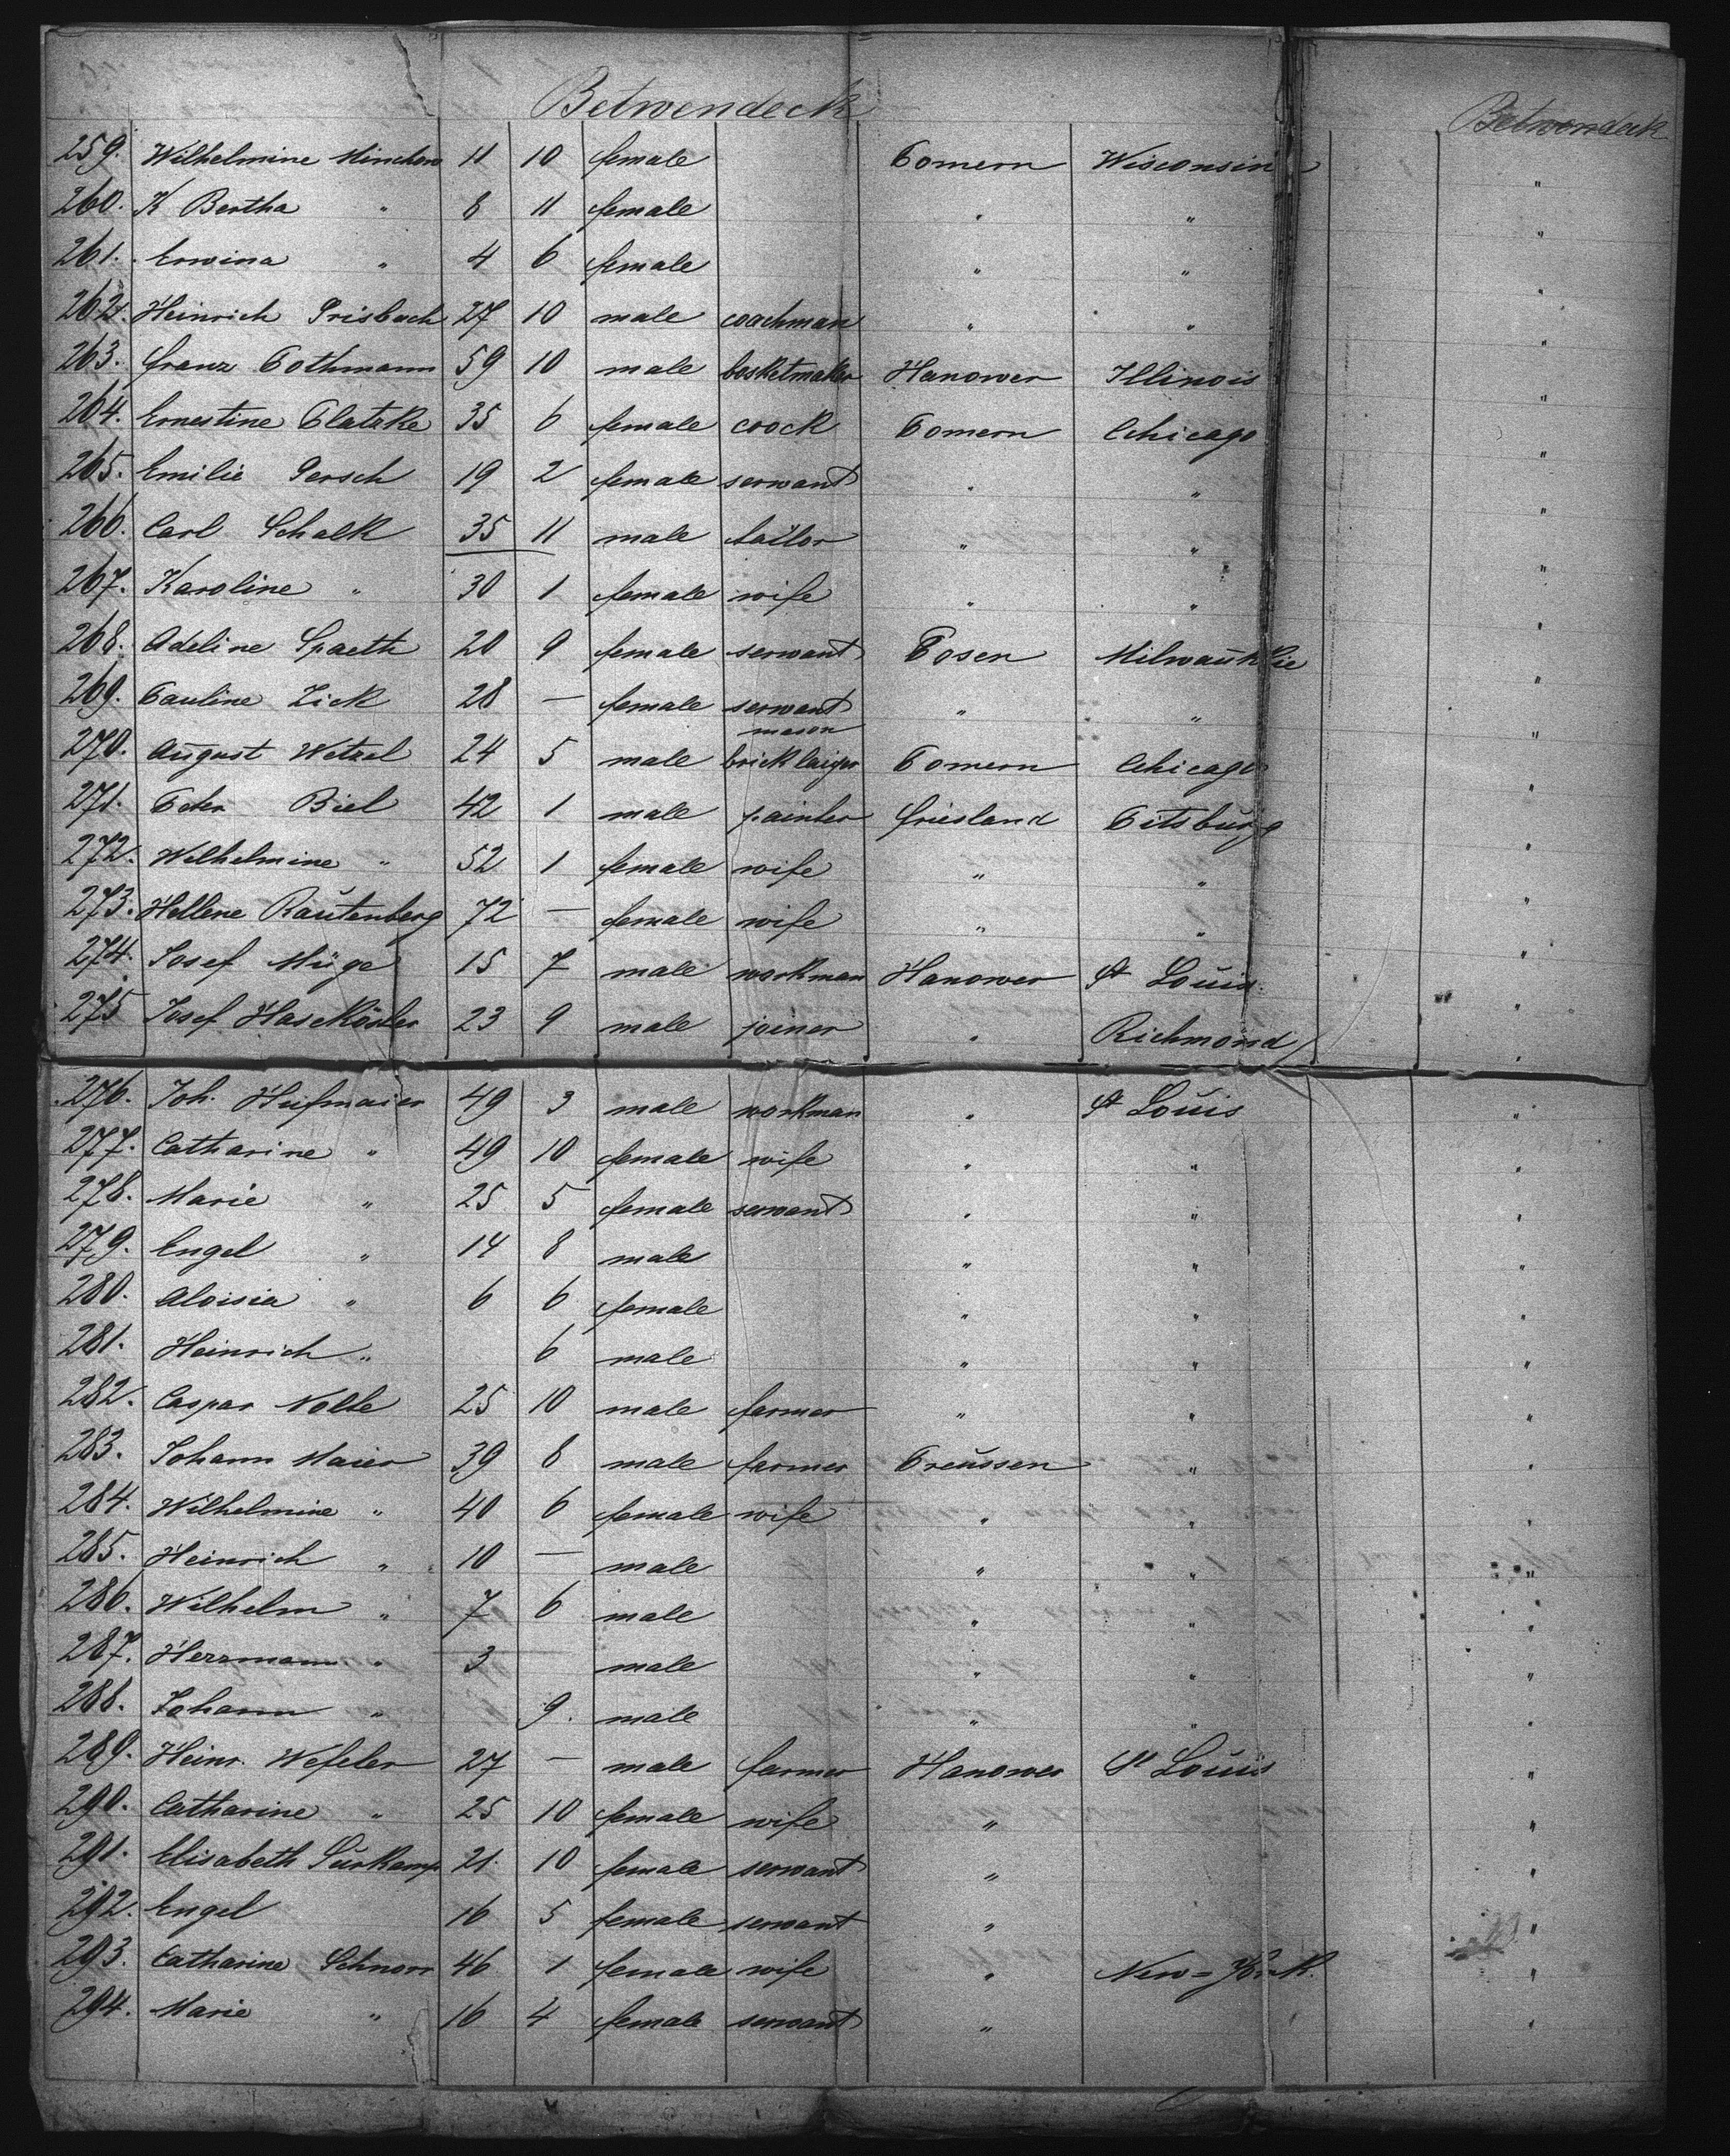 Betwendeck Betwendeck
259. Wilhelmine Minchow 11 10 female Pomern Wisconsin "
260. K Bertha " 8 11 female " " "
261. Erwina " 4 6 female " " "
262. Heinrich Prisbach 27 10 male coachman " " "
263. Franz Pothmann 59 10 male basketmaker Hanower Illinois "
264. Ernestine Platzke 35 6 female coock Pomern Chicago "
265. Emilie Persch 19 2 female serwant " " "
266. Carl Schalk 35 11 male tailor " " "
267. Karoline " 30 1 female wife " " "
268. Adeline Spaeth 20 9 female serwant Posen Milwaukie "
269. Pauline Zick 28 — female serwant " " "
mason
270. August Wetzel 24 5 male bricklaiger Pomern Chicago "
271. Peter Biel 42 1 male painter Friesland Pitsburg "
272. Wilhelmine " 52 1 female wife " " "
273. Hellene Rautenberg 72 — female wife " " "
274. Josef Müge 15 7 male workman Hanower St Louis "
275 Josef Haseköster 23 9 male joiner " Richmond "
276. Joh. Hüfmaier 49 3 male workman " St Louis "
277. Catharine " 49 10 female wife " " "
278. Marie " 25 5 female serwant " " "
279. Engel " 14 8 male " " "
280. Aloisia " 6 6 female " " "
281. Heinrich " 6 male " " "
282. Caspar Nolte 25 10 male farmer " " "
283. Johann Maier 39 8 male farmer Preussen " "
284. Wilhelmine " 40 6 female wife " " "
285. Heinrich " 10 — male " " "
286. Wilhelm " 7 6 male " " "
287. Herrmann " 3 male " " "
288. Johann " 9. male " " "
289. Heinr. Wefeler 27 — male farmer Hanower St Louis "
290. Catharine " 25 10 female wife " "
291. Elisabeth Surkamp 21. 10 female serwant " "
292. Engel 16 5 female serwant " "
293. Catharine Schnorr 46 1 female wife " New=York. "
294. Marie " 16 4 female serwant " "